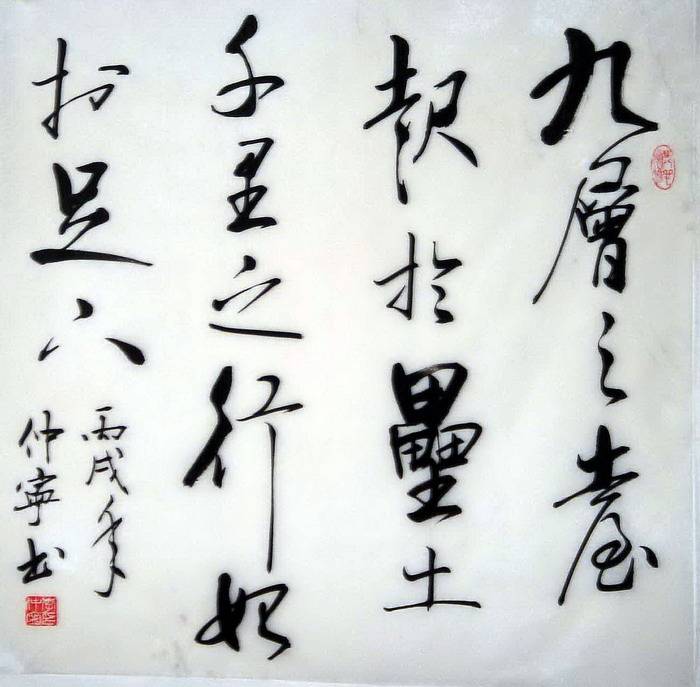 九層之臺
起於壘土
千里之行始
於足下
丙戌年
仲寧书